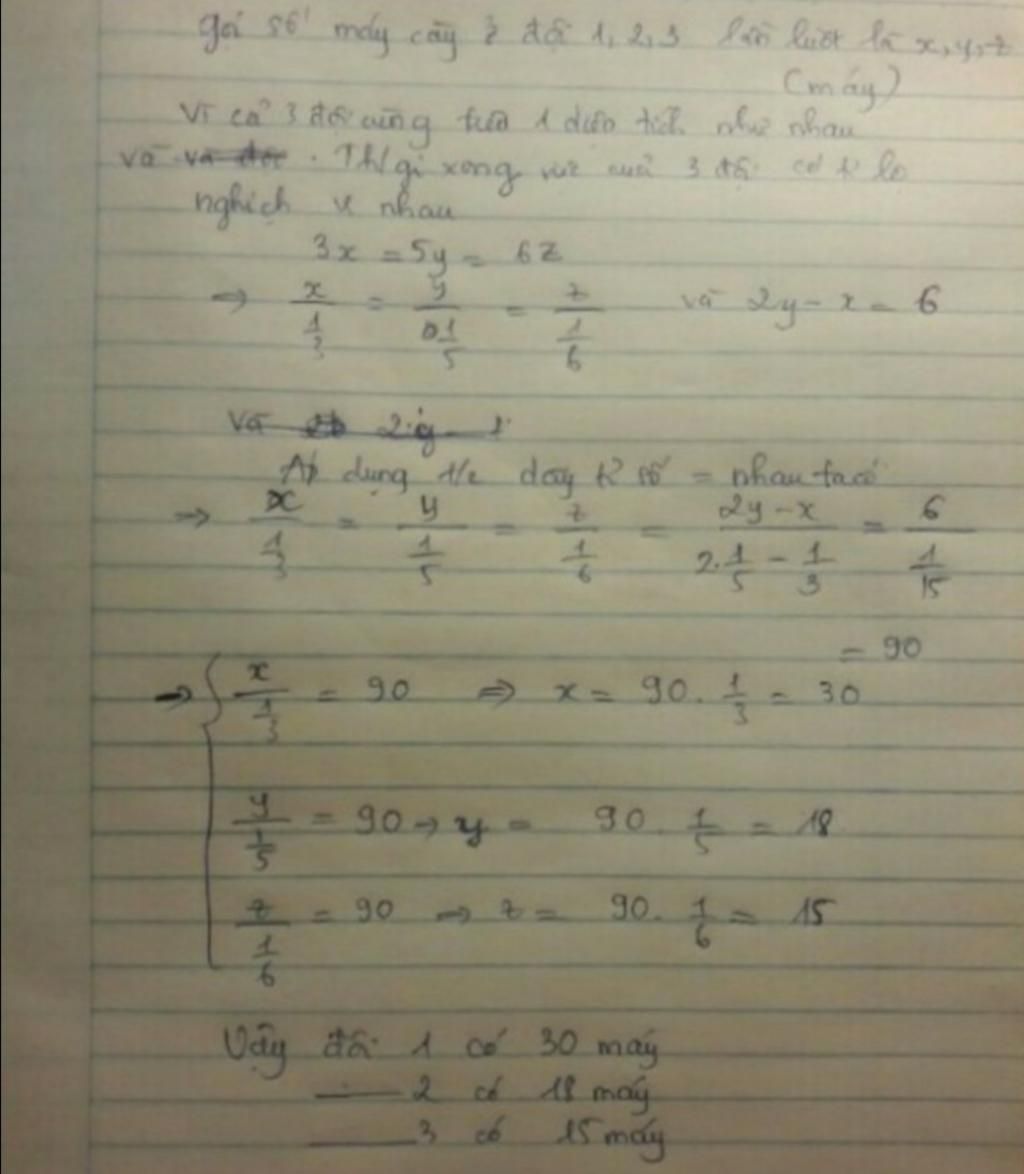 gọi số máy cày ở đội 1, 2, 3 lần lượt là x, y, z
(máy)
Vì cả 3 đội cùng 1 diện tích như nhau
và xong 3 đội có tỉ lệ
nghịch nhau
3x = 5y = 6z
=> x/(1/3) = y/(1/5) = z/(1/6) và 2y - x = 6
Và 2.y - 1
Áp dụng t/c dãy tỉ số = nhau ta có
=> x/(1/3) = y/(1/5) = z/(1/6) = (2y - x)/(2.1/5 - 1/3) = 6/(1/15)
= 90
=> { x/(1/3) = 90 => x = 90 . 1/3 = 30
y/(1/5) = 90 -> y = 90 . 1/5 = 18
z/(1/6) = 90 => z = 90 . 1/6 = 15
Vậy đội 1 có 30 máy
— 2 có 18 máy
— 3 có 15 máy